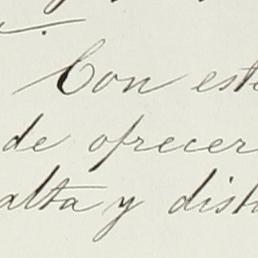 Con est
de ofrecer
alta y dist